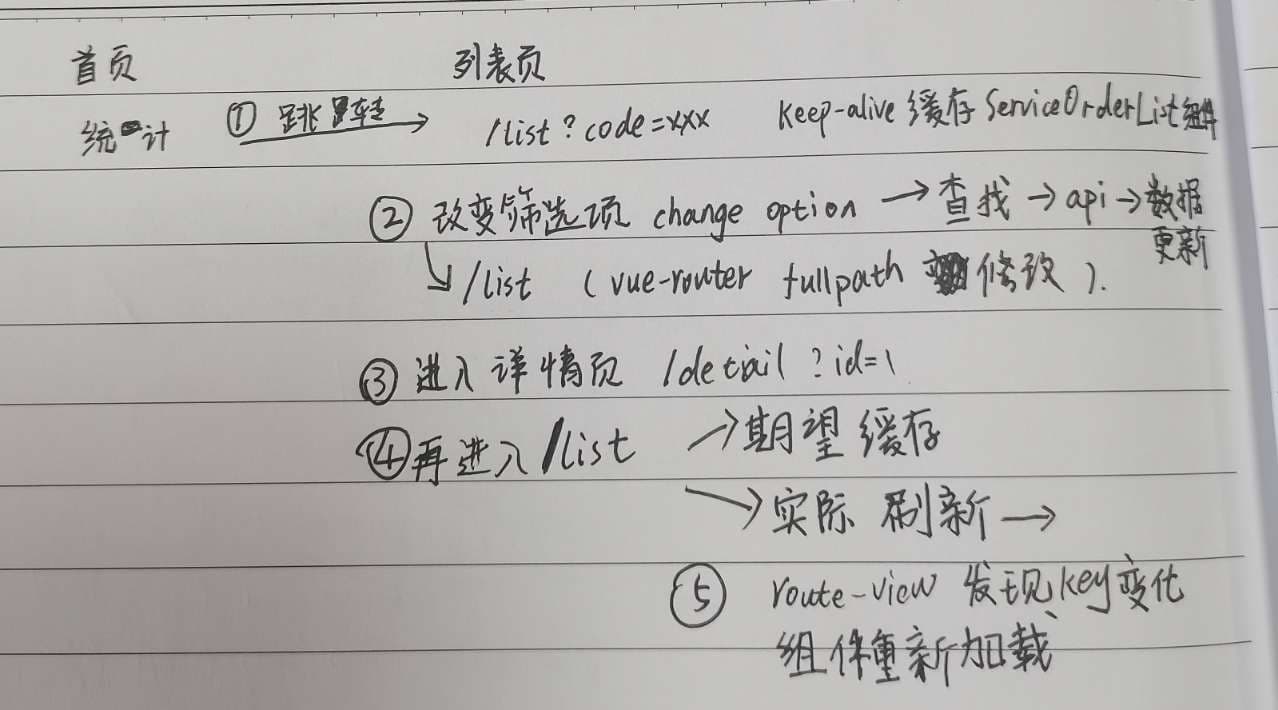 首页 列表页
统计 ① 跳转 → /list?code=xxx keep-alive 缓存 ServiceOrderList组件
② 改变筛选项 change option → 查找 → api → 数据
更新
↳ /list (vue-router fullpath 修改).
③ 进入详情页 /detail?id=1
④ 再进入 /list → 期望缓存
→ 实际 刷新 →
⑤ route-view 发现key变化
组件重新加载